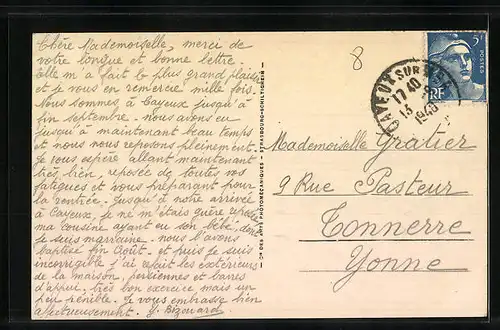 Chère Mademoiselle, merci de
votre longue et bonne lettre.
Elle m'a fait le plus grand plaisir
et je vous en remercie mille fois.
Nous sommes à Cayeux jusqu'à
fin septembre. nous avons eu
jusqu'à maintenant beau temps
et nous nous reposons pleinement.
Je vous espère allant maintenant
très bien, reposée de toutes vos
fatigues et vous préparant pour
la rentrée. Jusqu'à notre arrivée
à Cayeux, je ne m'étais guère reposée
ma cousine ayant eu son bébé, dont
je suis marraine. nous l'avons
baptisé fin Août. et puis je suis
incorrigible j'ai refait les extérieurs
de la maison, persiennes et barres
d'appui. très bon exercice mais un
peu pénible. Je vous embrasse bien
affectueusement. Y. Bizouard
CIE DES ARTS PHOTOMÉCANIQUES - STRASBOURG-SCHILTIGHEIM
8
5F
POSTES
RF
CAYEUX SUR
17 40
13
1948
Mademoiselle Gratier
9 Rue Pasteur
Tonnerre
Yonne